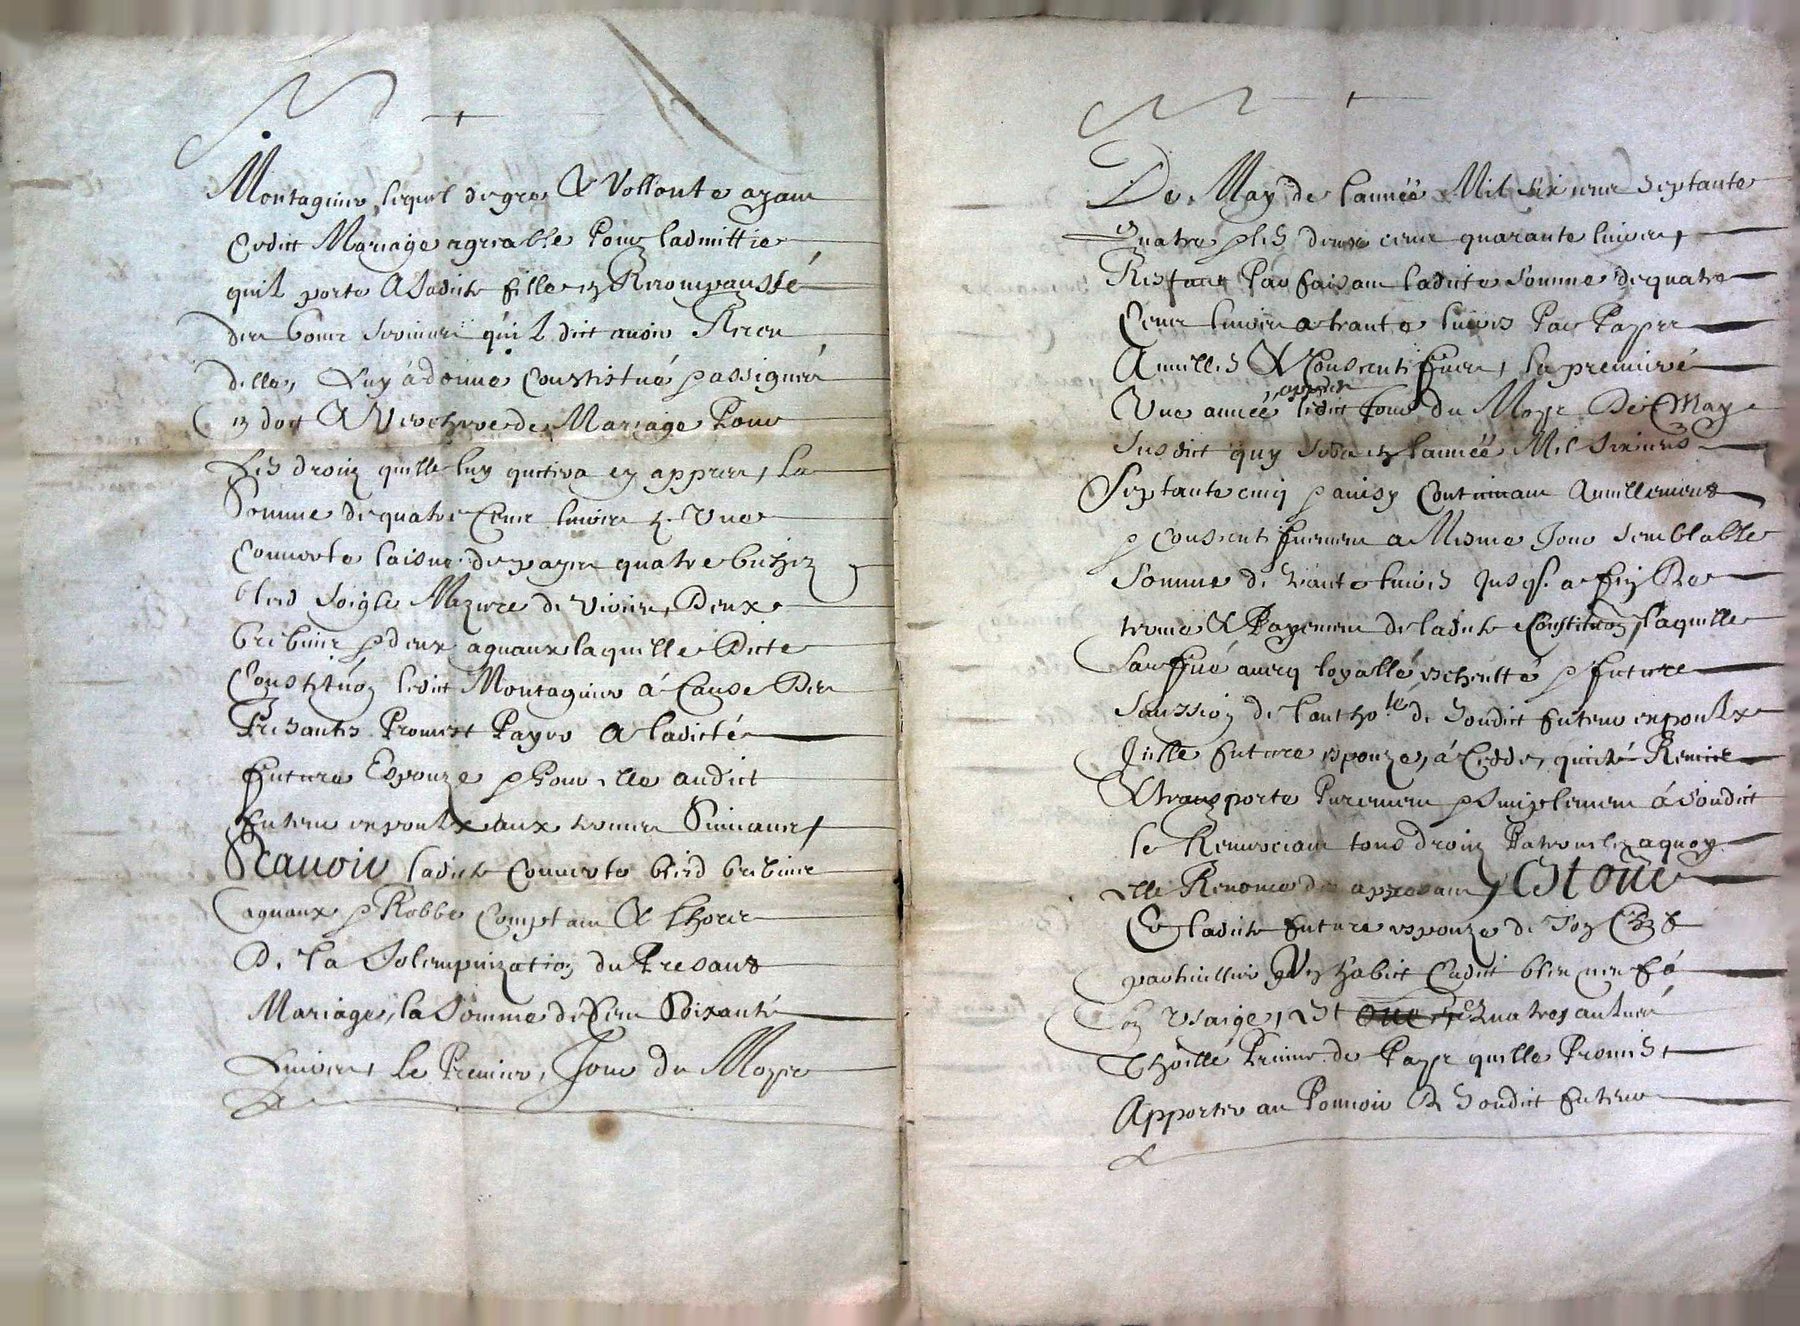 Montagnier, lequel de gre & Vollonte ayant
Cedict Mariage agreable Pour Ladmittie
quil porte A Ladicte fille en Recompansse
des bons services quil dict avoir Receu
delle, Luy a donné Constitué p assigné
en dot & Verchere de Mariage Pour
Les droictz quelle luy quittera cy appres, La
Somme de quatre Cent livres, Une
Couverte laisne de pays quatre bichez
bled Soigle Mezure de Viviers, Deux
brebins p deux agnaux laquelle Dicte
Constituon ledict Montagnier á Cause Des
Presantes Promest Payer A ladicte
future Espouze p Pour elle audict
futeur espoulx aux termes Suivants,
Scavoir Ladicte Couverte bled brebins
agnaux p Robbe Comptant A Lhorre
De La Solempnization du Presant
Mariage, la Somme de Cent Soixante
Livres, Le Premier, Jour du Moys
De May de lannée Mil Six cens Septante
Quatre p les deux cent quarante livres,
Restant Par faisant ladicte Somme de quatre
Cent livres a trante livres Par Payes
Annuelles & Consecutifves, la premiere
Une année appres ledict Jour du Moys De May
Susdict quy Sera en lannée Mil Sixcens
Septante cinq p ainsy Continuant Annuellement
p Consecutifvement a Mesme Jour Semblable
Somme de trante livres Jusqs a fin De
terme & Payement de ladicte Constituon, Laquelle
future
de Lautho.te de Sondict futeur espoulx
Icelle future espouze, á Cedde, quicte Remet
& transporte Purement p Simplement á Sondict
Pe Renonceant tous droictz Paternelz aquoy
elle Renonce des appresant, Et oue
Ce ladicte future espouze de Son Chef
particullier Un habict Cadict bleu
on Usaige, Et oue Quatres aulnes
Thoille Prinne de Pays quelle Promest
Apporter au Pouvoir De Sondict futeur